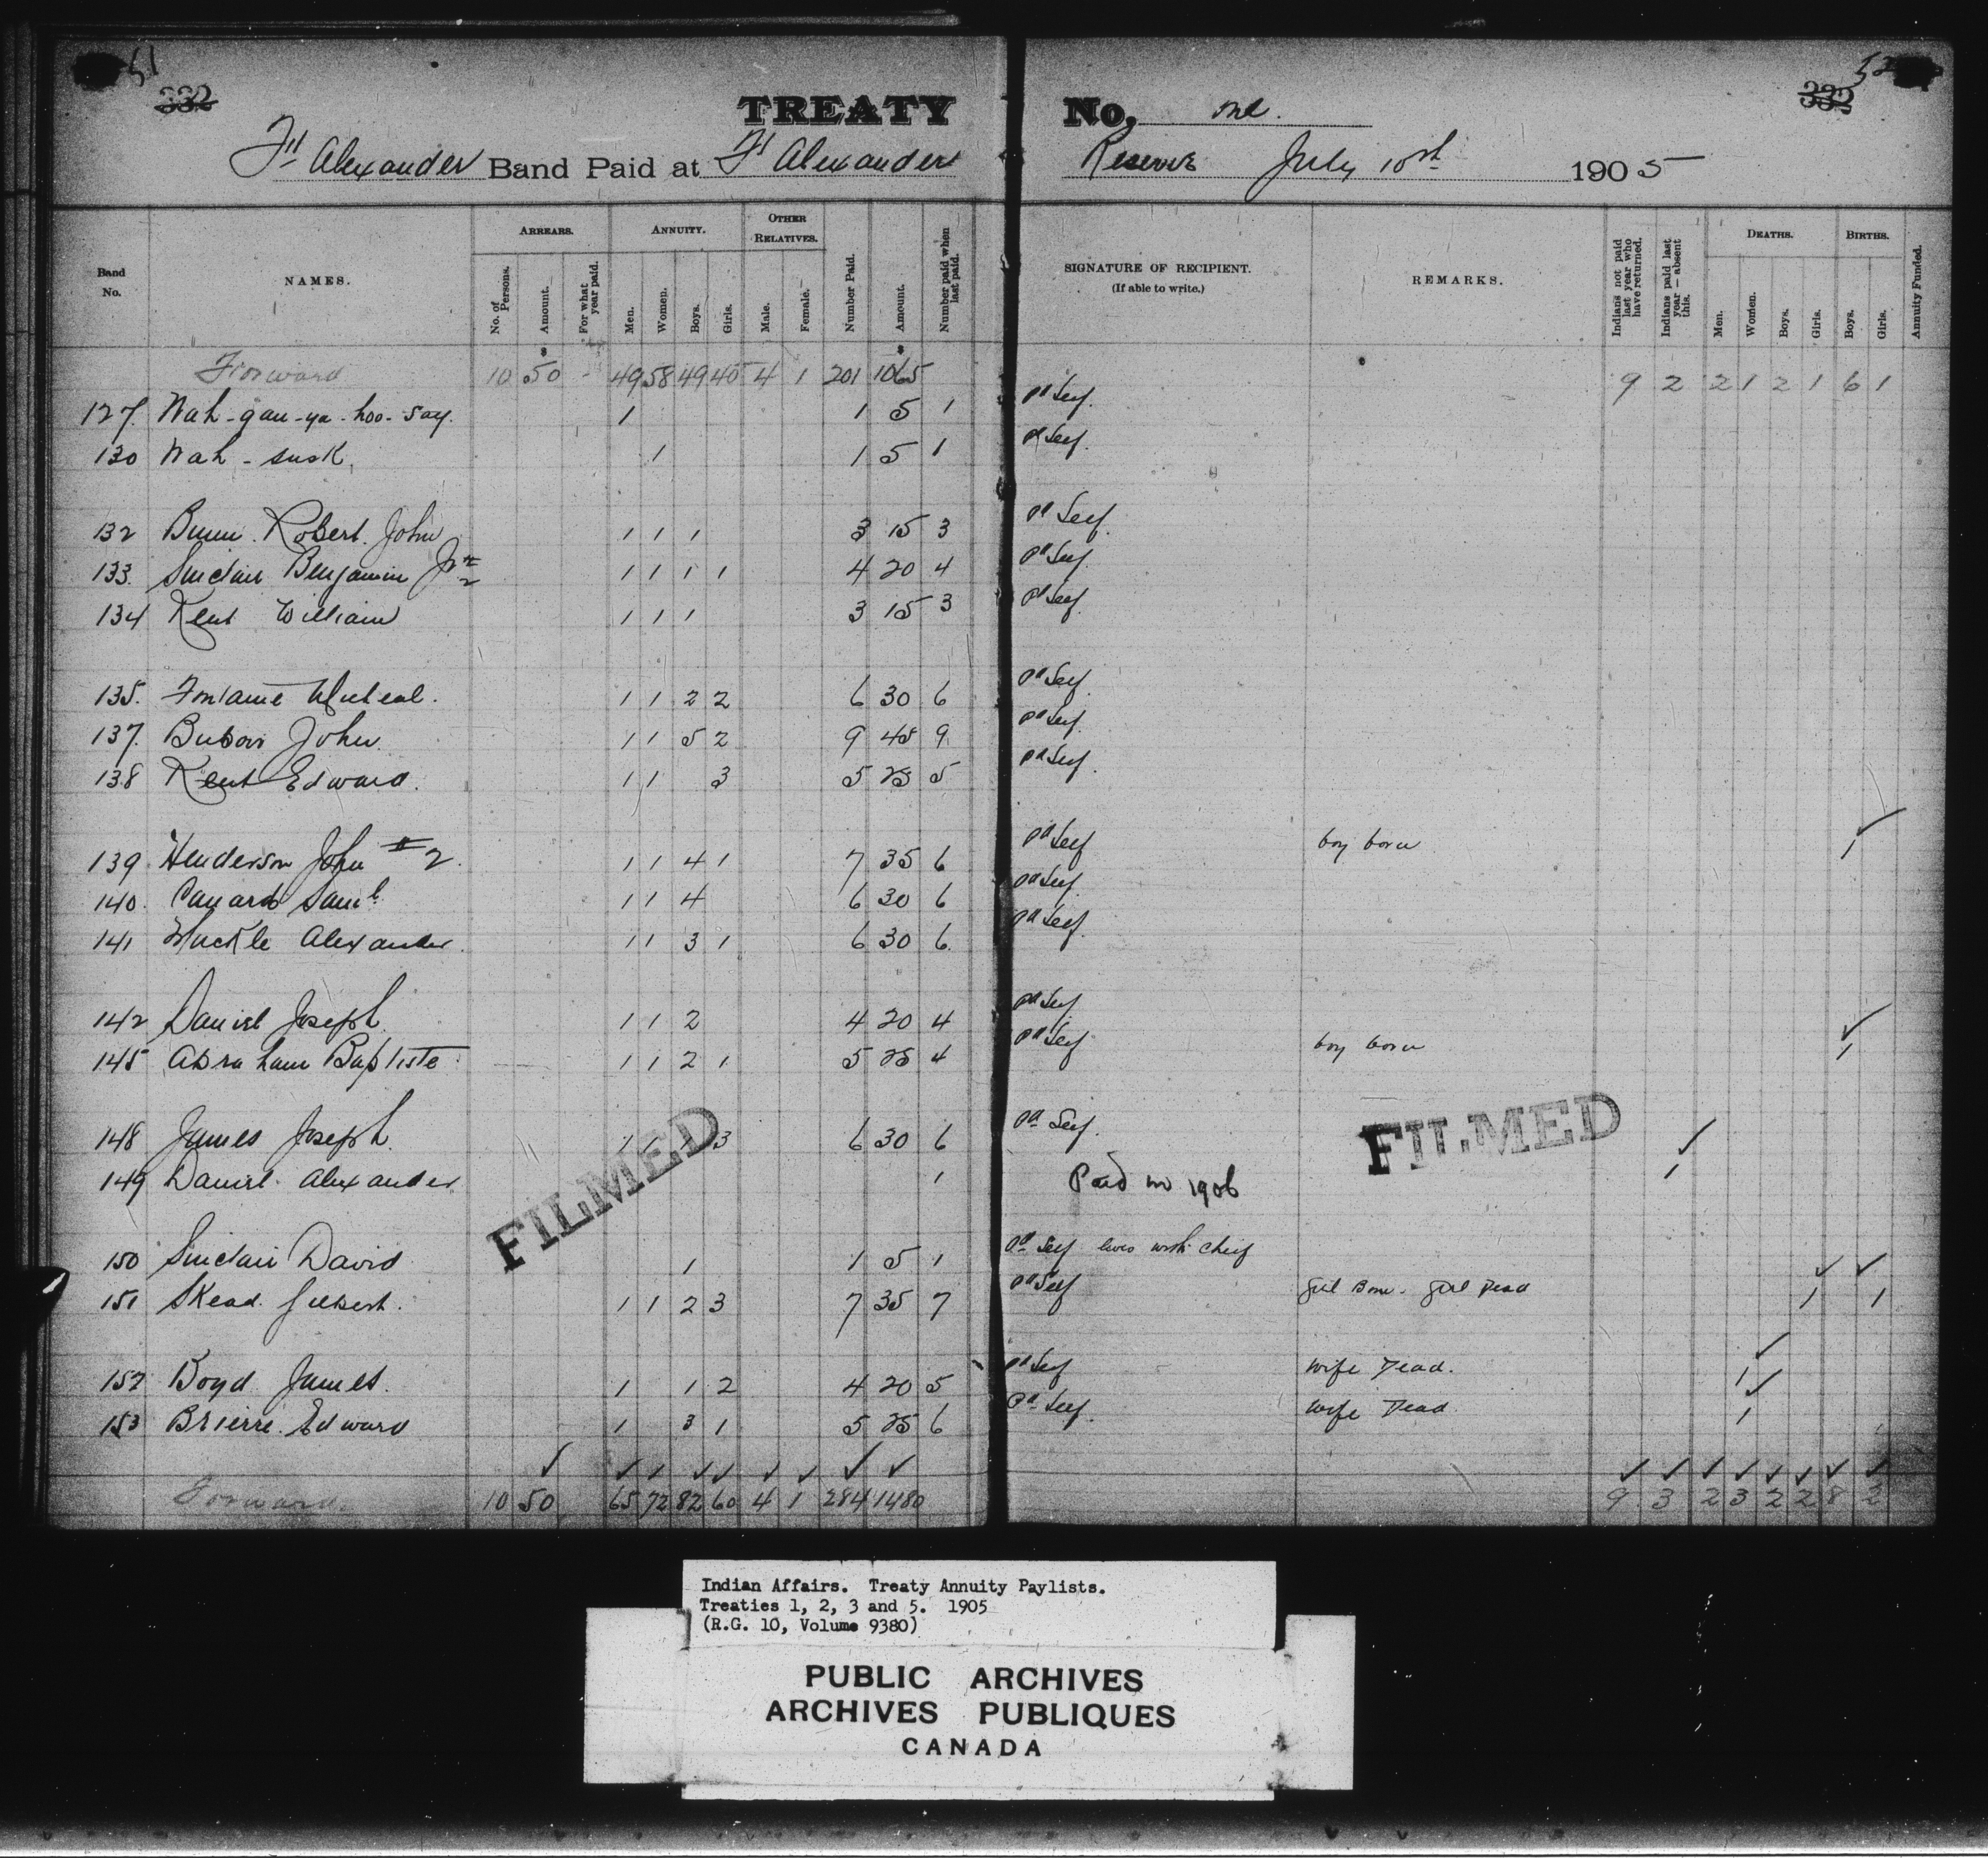 51
332
TREATY No. One.
332
52
Ft Alexander Band Paid at Ft Alexander Reserve July 10th 1905
Band No.
NAMES.
ARREARS.
No. of Persons.
Amount.
For what year paid.
ANNUITY.
Men.
Women.
Boys.
Girls.
OTHER RELATIVES.
Male.
Female.
Number Paid.
Amount.
Number paid when last paid.
SIGNATURE OF RECIPIENT.
(If able to write.)
REMARKS.
Indians not paid last year who have returned.
Indians paid last year — absent this.
DEATHS.
Men.
Women.
Boys.
Girls.
BIRTHS.
Boys.
Girls.
Annuity Funded.
Forward 10 $50 - 49 58 49 40 4 1 201 $1065 9 2 2 1 2 1 6 1
127. Wah-gau-ya-hoo-say. 1 1 5 1 pd Self.
130 Wah-susk. 1 1 5 1 pd Self.
132 Bunn. Robert. John 1 1 1 3 15 3 pd Self.
133. Sinclair Benjamin Jr 1 1 1 1 4 20 4 pd Self.
134 Kent William 1 1 1 3 15 3 pd Self.
135. Fontaine Micheal. 1 1 2 2 6 30 6 pd Self.
137. John. 1 1 5 2 9 45 9 pd Self.
138 Kent Edward. 1 1 3 5 25 5 pd Self.
139 Henderson John #2. 1 1 4 1 7 35 6 pd Self boy born 1
140. Canard Saml. 1 1 4 6 30 6 pd Self.
141 Huckle Alexander. 1 1 3 1 6 30 6. pd Self.
142 Daniel Joseph. 1 1 2 4 20 4 pd Self
145 Abraham Baptiste 1 1 2 1 5 25 4 pd Self boy born 1
148 James Joseph. 1 1 1 3 6 30 6 pd Self.
149 Daniel Alexander. 1 Paid in 1906 1
FILMED
FILMED
150 Sinclair David 1 1 5 1 pd Self lives with Chief
151 Skead. Gilbert. 1 1 2 3 7 35 7 pd Self Girl Born - Girl Dead 1 1
152 Boyd James. 1 1 2 4 20 5 pd Self Wife Dead. 1
153 Brierre. Edward 1 3 1 5 25 6 pd Self. Wife Dead 1
Forward. 10 50 65 72 82 60 4 1 284 1480 9 3 2 3 2 2 8 2
Indian Affairs. Treaty Annuity Paylists.
Treaties 1, 2, 3 and 5. 1905
(R.G. 10, Volume 9380)
PUBLIC ARCHIVES
ARCHIVES PUBLIQUES
CANADA